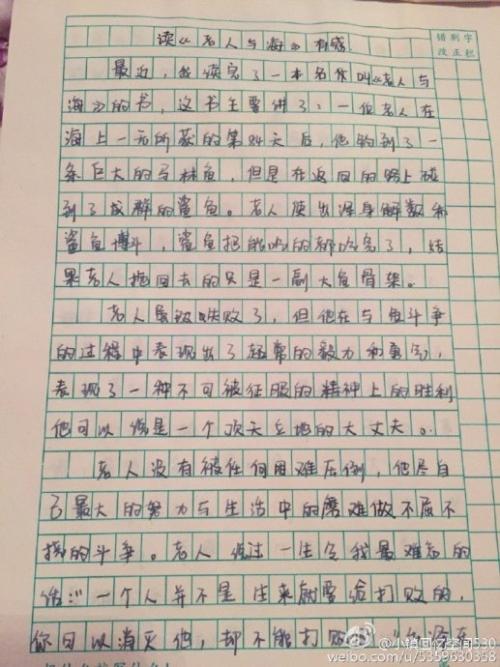 错别字
改正栏
读《老人与海》有感
最近,我读完了一本名字叫《老人与
海》的书,这书主要讲了:一位老人在
海上一无所获的第84天后,他钓到了一
条巨大的马林鱼,但是在返回的路上碰
到了成群的鲨鱼。老人使出浑身解数和
鲨鱼博斗,鲨鱼把能吃的都吃完了,结
果老人拖回去的只是一副大鱼骨架。
老人虽被失败了,但他在与鱼斗争
的过程中表现出了超常的毅力和勇气,
表现了一种不可被征服的精神上的胜利
他可以说是一个顶天立地的大丈夫。
老人没有被任何困难压倒,他尽自
己最大的努力与生活中的磨难做不屈不
挠的斗争。老人说过一生令我最难忘的
话:“一个人并不是生来就要给打败的,
你可以消灭他,却不能打败
@小销回忆空间530
weibo.com/u/5359630358